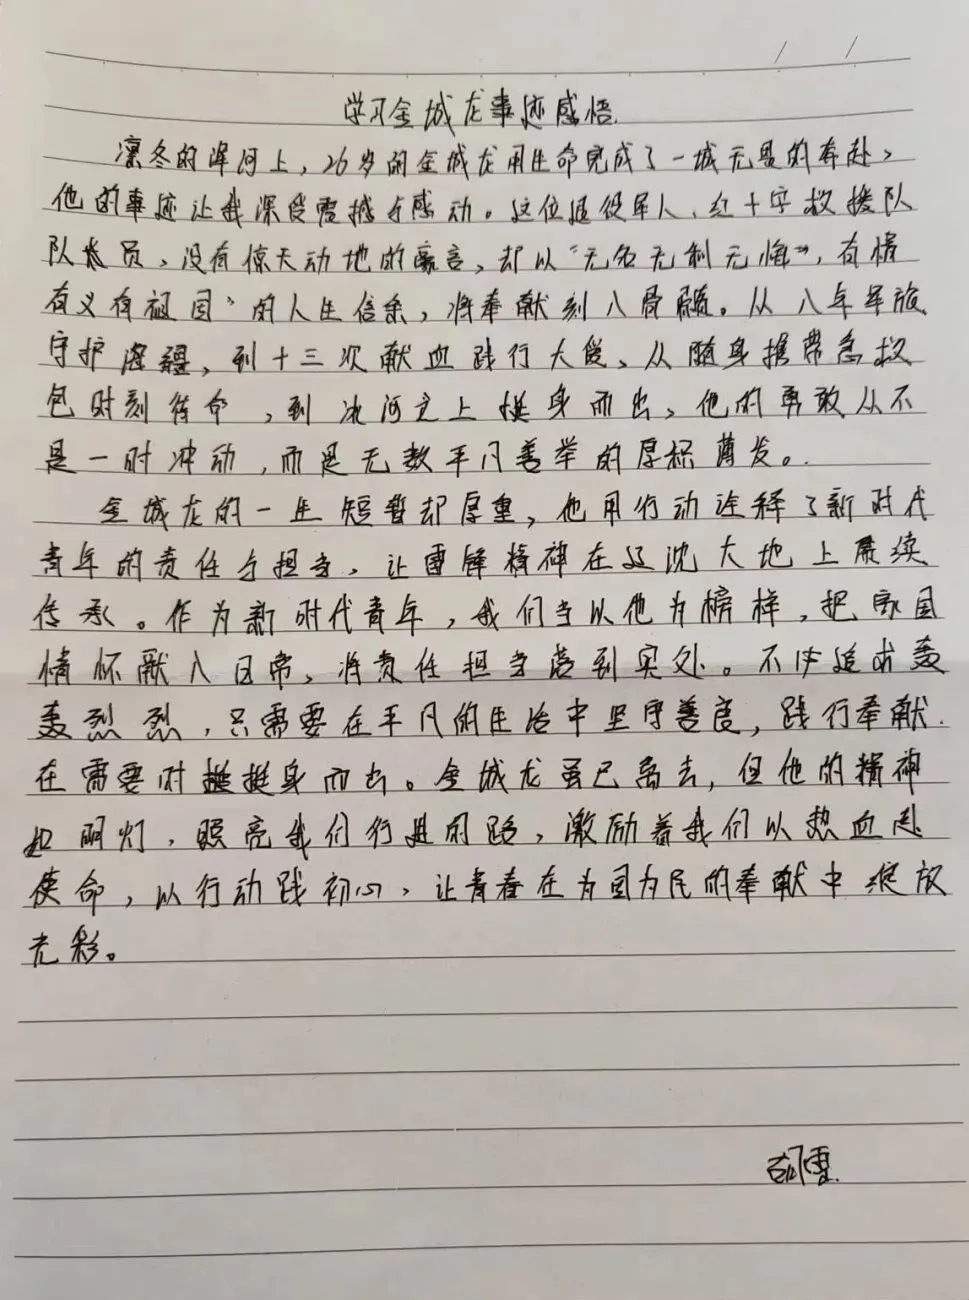 学习金城龙事迹感悟.
凛冬的浑河上，26岁的金城龙用生命完成了一城无畏的奔赴，
他的事迹让我深受震撼与感动。这位退役军人、红十字救援队
队员，没有惊天动地的豪言，却以“无名无利无悔”，有情
有义有祖国”的人生信条，将奉献刻入骨髓。从八年军旅
守护海疆，到十三次献血践行大爱、从随身携带急救
包时刻待命，到冰河之上挺身而出，他的勇敢从不
是一时冲动，而是无数平凡善举的厚积薄发。
金城龙的一生短暂却厚重，他用行动诠释了新时代
青年的责任与担当，让雷锋精神在辽沈大地上赓续
传承。作为新时代青年，我们当以他为榜样，把家国
情怀融入日常，将责任担当落到实处。不必追求轰
轰烈烈，只需要在平凡的生活中坚守善良，践行奉献.
在需要时挺挺身而出。金城龙虽已离去，但他的精神
如明灯，照亮我们行进的路，激励着我们以热血赴
使命，以行动践初心，让青春在为国为民的奉献中绽放
光彩。